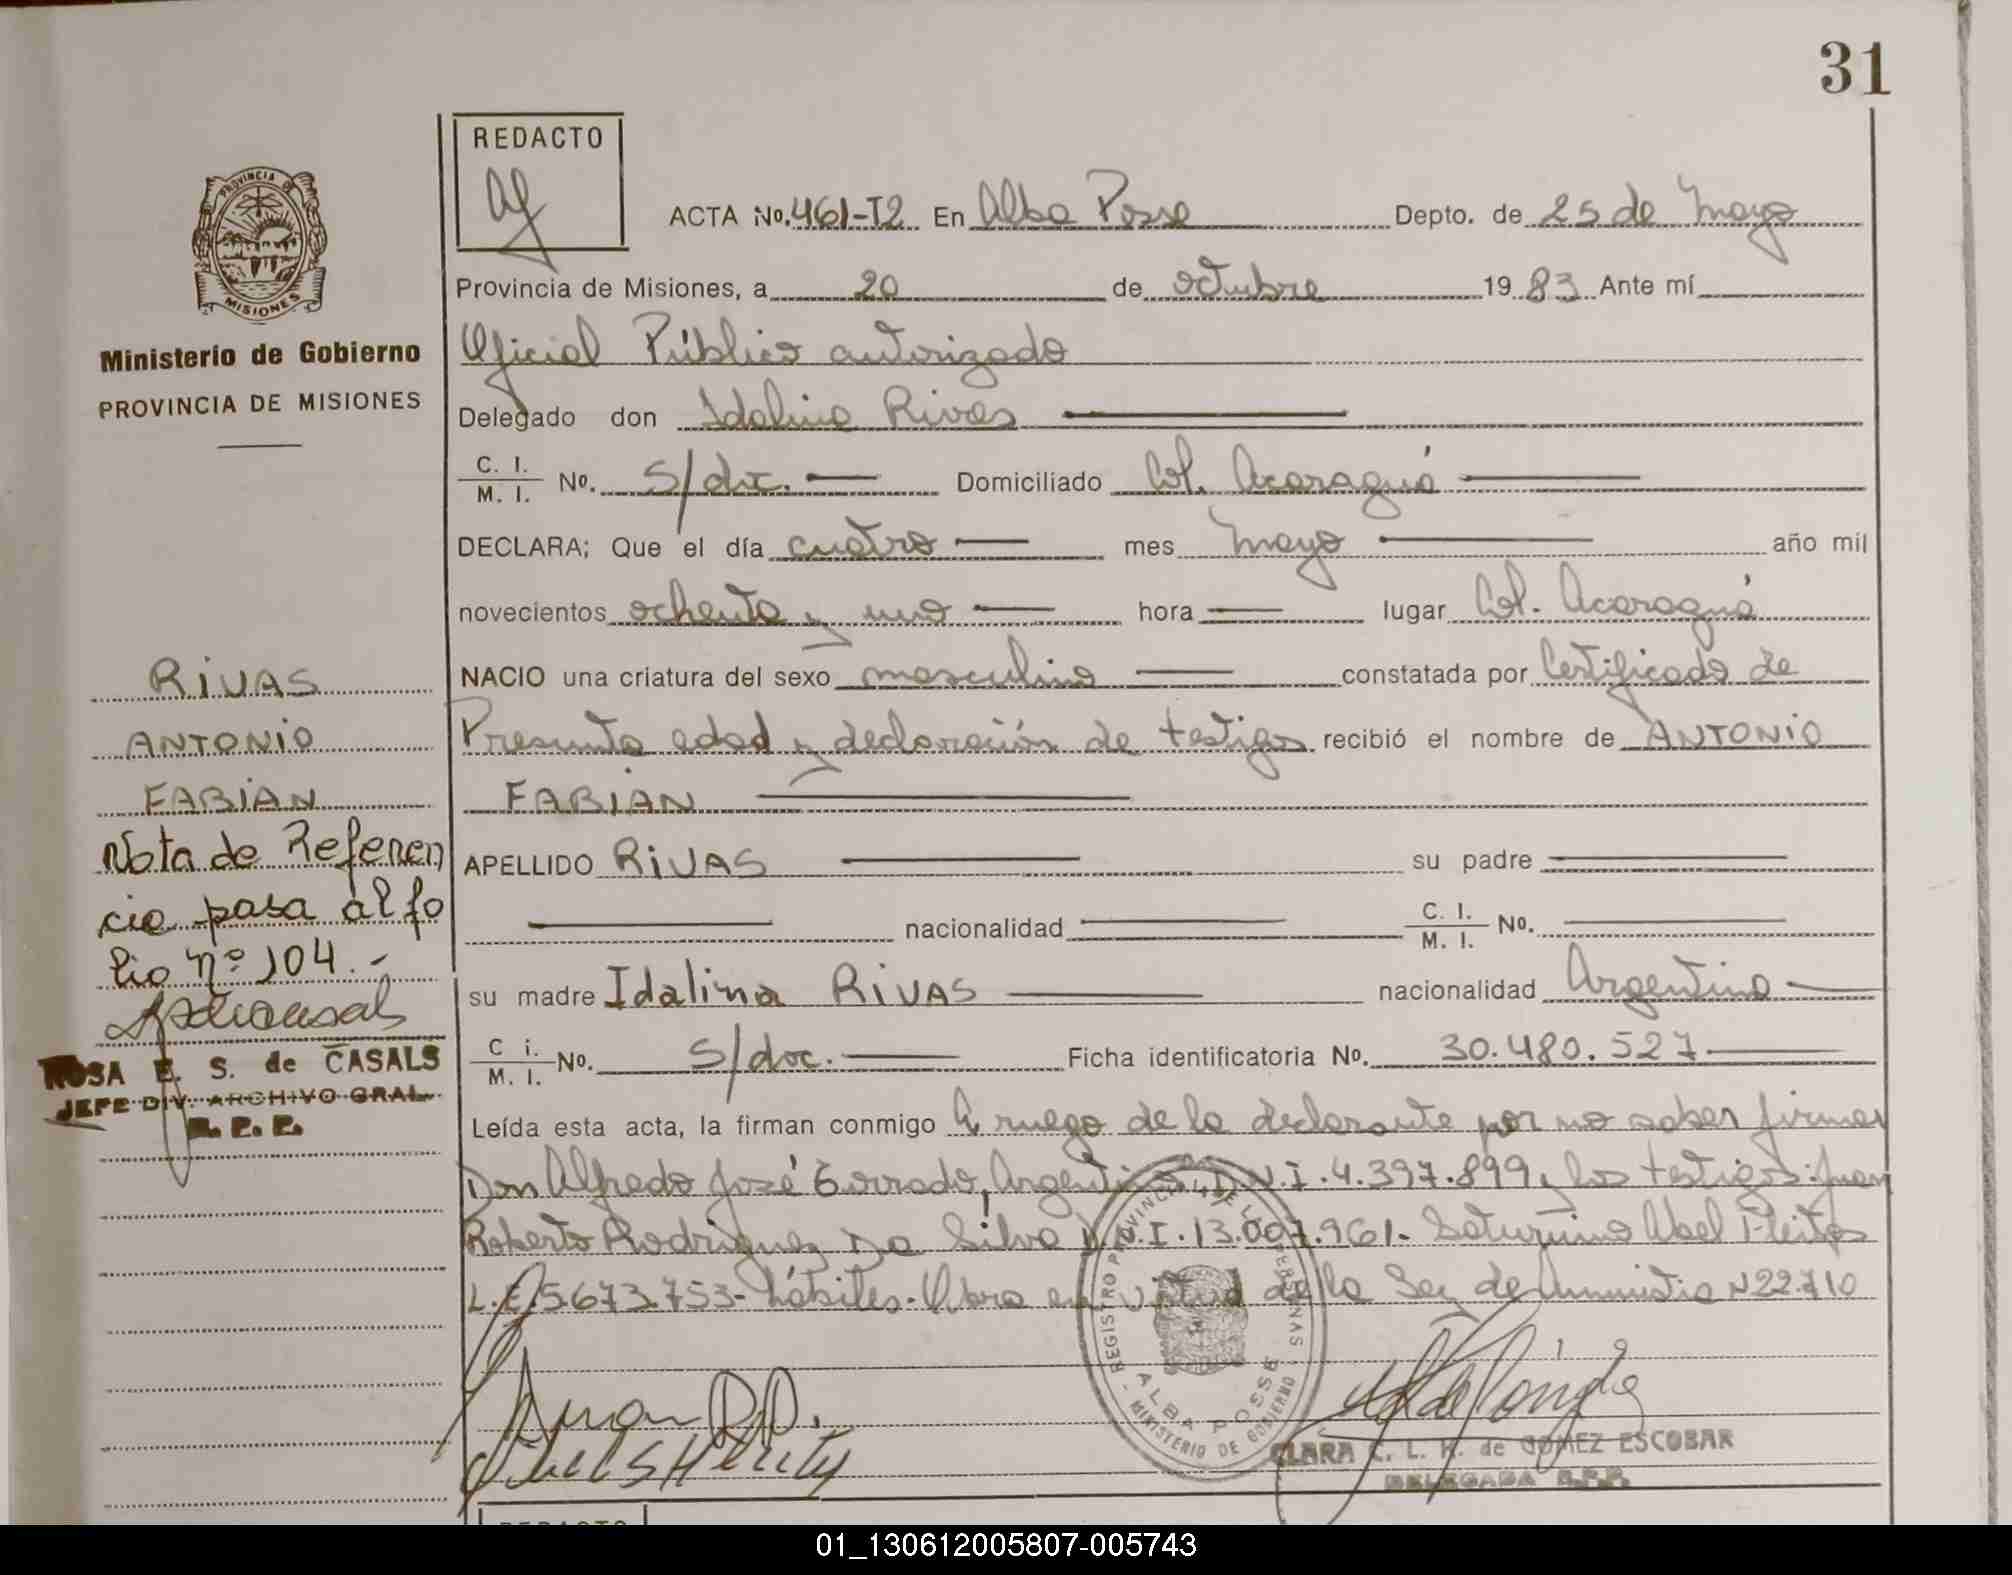 31
REDACTO
ACTA No. 461-T2 En Alba Posse Depto. de 25 de Mayo
PROVINCIA DE MISIONES
Provincia de Misiones, a 20 de octubre 1983 Ante mí
Ministerio de Gobierno
PROVINCIA DE MISIONES
Oficial Público autorizado
Delegado don Idalina Rivas
C. I. M. I. No. s/doc. Domiciliado Col. Acaraguá
DECLARA; Que el día cuatro mes mayo año mil
novecientos ochenta y uno hora lugar Col. Acaraguá
NACIO una criatura del sexo masculino constatada por Certificado de
Presunta edad y declaración de testigos recibió el nombre de ANTONIO
FABIAN
APELLIDO RIVAS su padre
nacionalidad C. I. M. I. No.
su madre Idalina RIVAS nacionalidad Argentina
C i. M. I. No. s/doc. Ficha identificatoria No. 30.480.527
Leída esta acta, la firman conmigo A ruego de la declarante por no saber firmar
Don Alfredo José Argentino D.N.I. 4.397.899, los testigos: Juan
Roberto Rodriguez Da Silva D.N.I. 13.007.961. Saturnino Abel Fleitas
L.E. 5.673.753- hábiles. Obra en virtud de la Ley de Amnistia N 22.710
RIVAS
ANTONIO
FABIAN
Nota de Referen
cia pasa al fo
lio nº 104.-
ROSA E. S. de CASALS
JEFE DIV. ARCHIVO GRAL.
R. P. P.
REGISTRO PROVINCIAL DE LAS PERSONAS
ALBA POSSE
MINISTERIO DE GOBIERNO
CLARA C. L. K. de GOMEZ ESCOBAR
DELEGADA R.P.P.
REDACTO
01_130612005807-005743